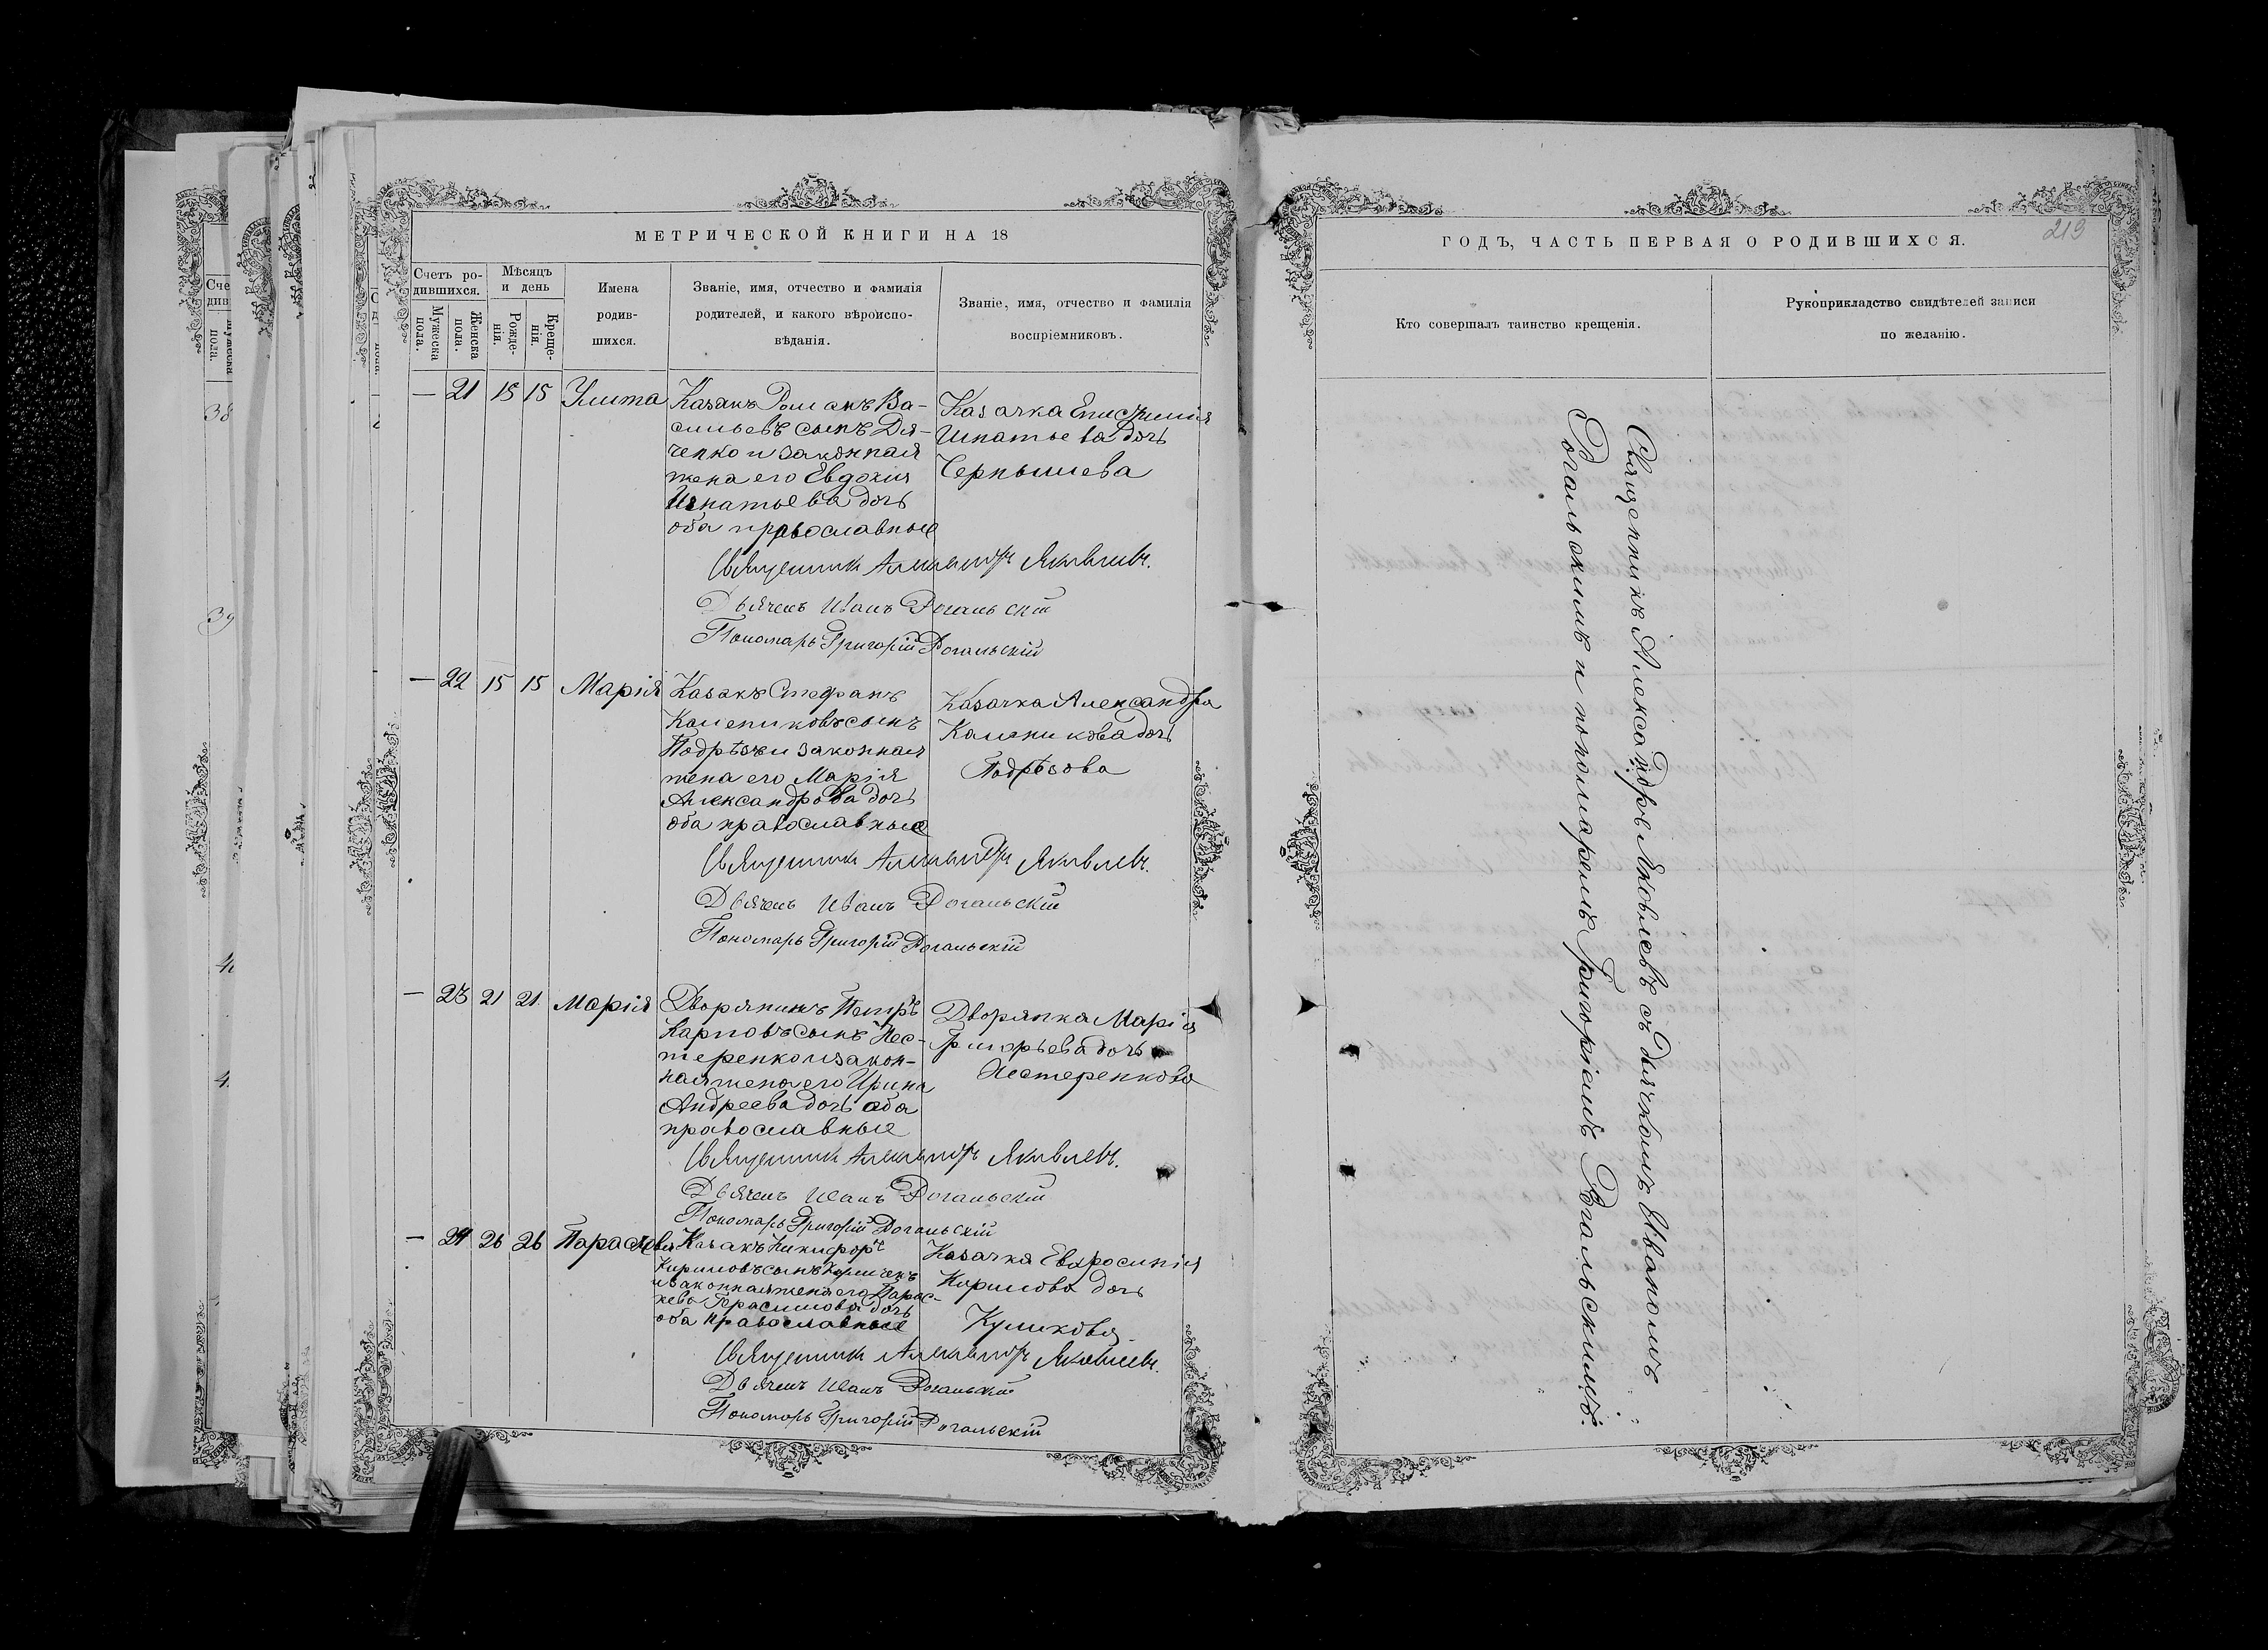 МЕТРИЧЕСКОЙ КНИГИ НА 18
Счетъ ро-
дившихся.
Мужеска
пола.
Женска
пола.
Мѣсяцъ
и день
Рожде-
нія.
Креще-
нія.
Имена
родив-
шихся.
Званіе, имя, отчество и фамилія
родителей, и какого вѣроиспо-
вѣданія.
Званіе, имя, отчество и фамилія
воспріемниковъ.
— 21 15 15 Улита
Казакъ Романъ Ва-
сильевъ сынъ Дя-
ченко и законная
жена его Евдокия
Игнатьева дочь
оба православные
Казачка Епистимия
Игнатьева дочь
Чернышева
Священникъ Александръ Яковлевъ.
Дьячекъ Иванъ Рогальскій
Пономарь Григорій Рогальскій
— 22 15 15 Марія
Казакъ Стефанъ
сынъ
законная
жена его Марія
Александрова дочь
оба православные
Казачка Александра
дочь
Подрѣзова
Священникъ Александръ Яковлевъ.
Дьячекъ Иванъ Рогальскій
Пономарь Григорій Рогальскій
— 23 21 21 Марія
Дворянинъ Петръ
Карповъ сынъ Нес-
теренко и закон-
ная жена его Ирина
Андреева дочь оба
православные
Дворянка Марія
Григорьева дочь
Нестеренкова
Священникъ Александръ Яковлевъ.
Дьячекъ Иванъ Рогальскій
Пономарь Григорій Рогальскій
— 24 26 26 Параскева
Казакъ Никифоръ
Кириловъ сынъ
и законная жена его Парас-
кева Герасимова дочь
оба православные
Казачка Евфросинія
Карпова дочь
Куликова
Священникъ Александръ Яковлевъ.
Дьячекъ Иванъ Рогальскій
Пономарь Григорій Рогальскій
ГОДЪ, ЧАСТЬ ПЕРВАЯ О РОДИВШИХСЯ.
213
Кто совершалъ таинство крещенія.
Рукоприкладство свидѣтелей записи
по желанію.
Священникъ Александръ Яковлевъ съ дьячкомъ Иваномъ
Рогальскимъ и пономаремъ Григоріемъ Рогальскимъ.
Сче
див
пола.
38
39
4
4